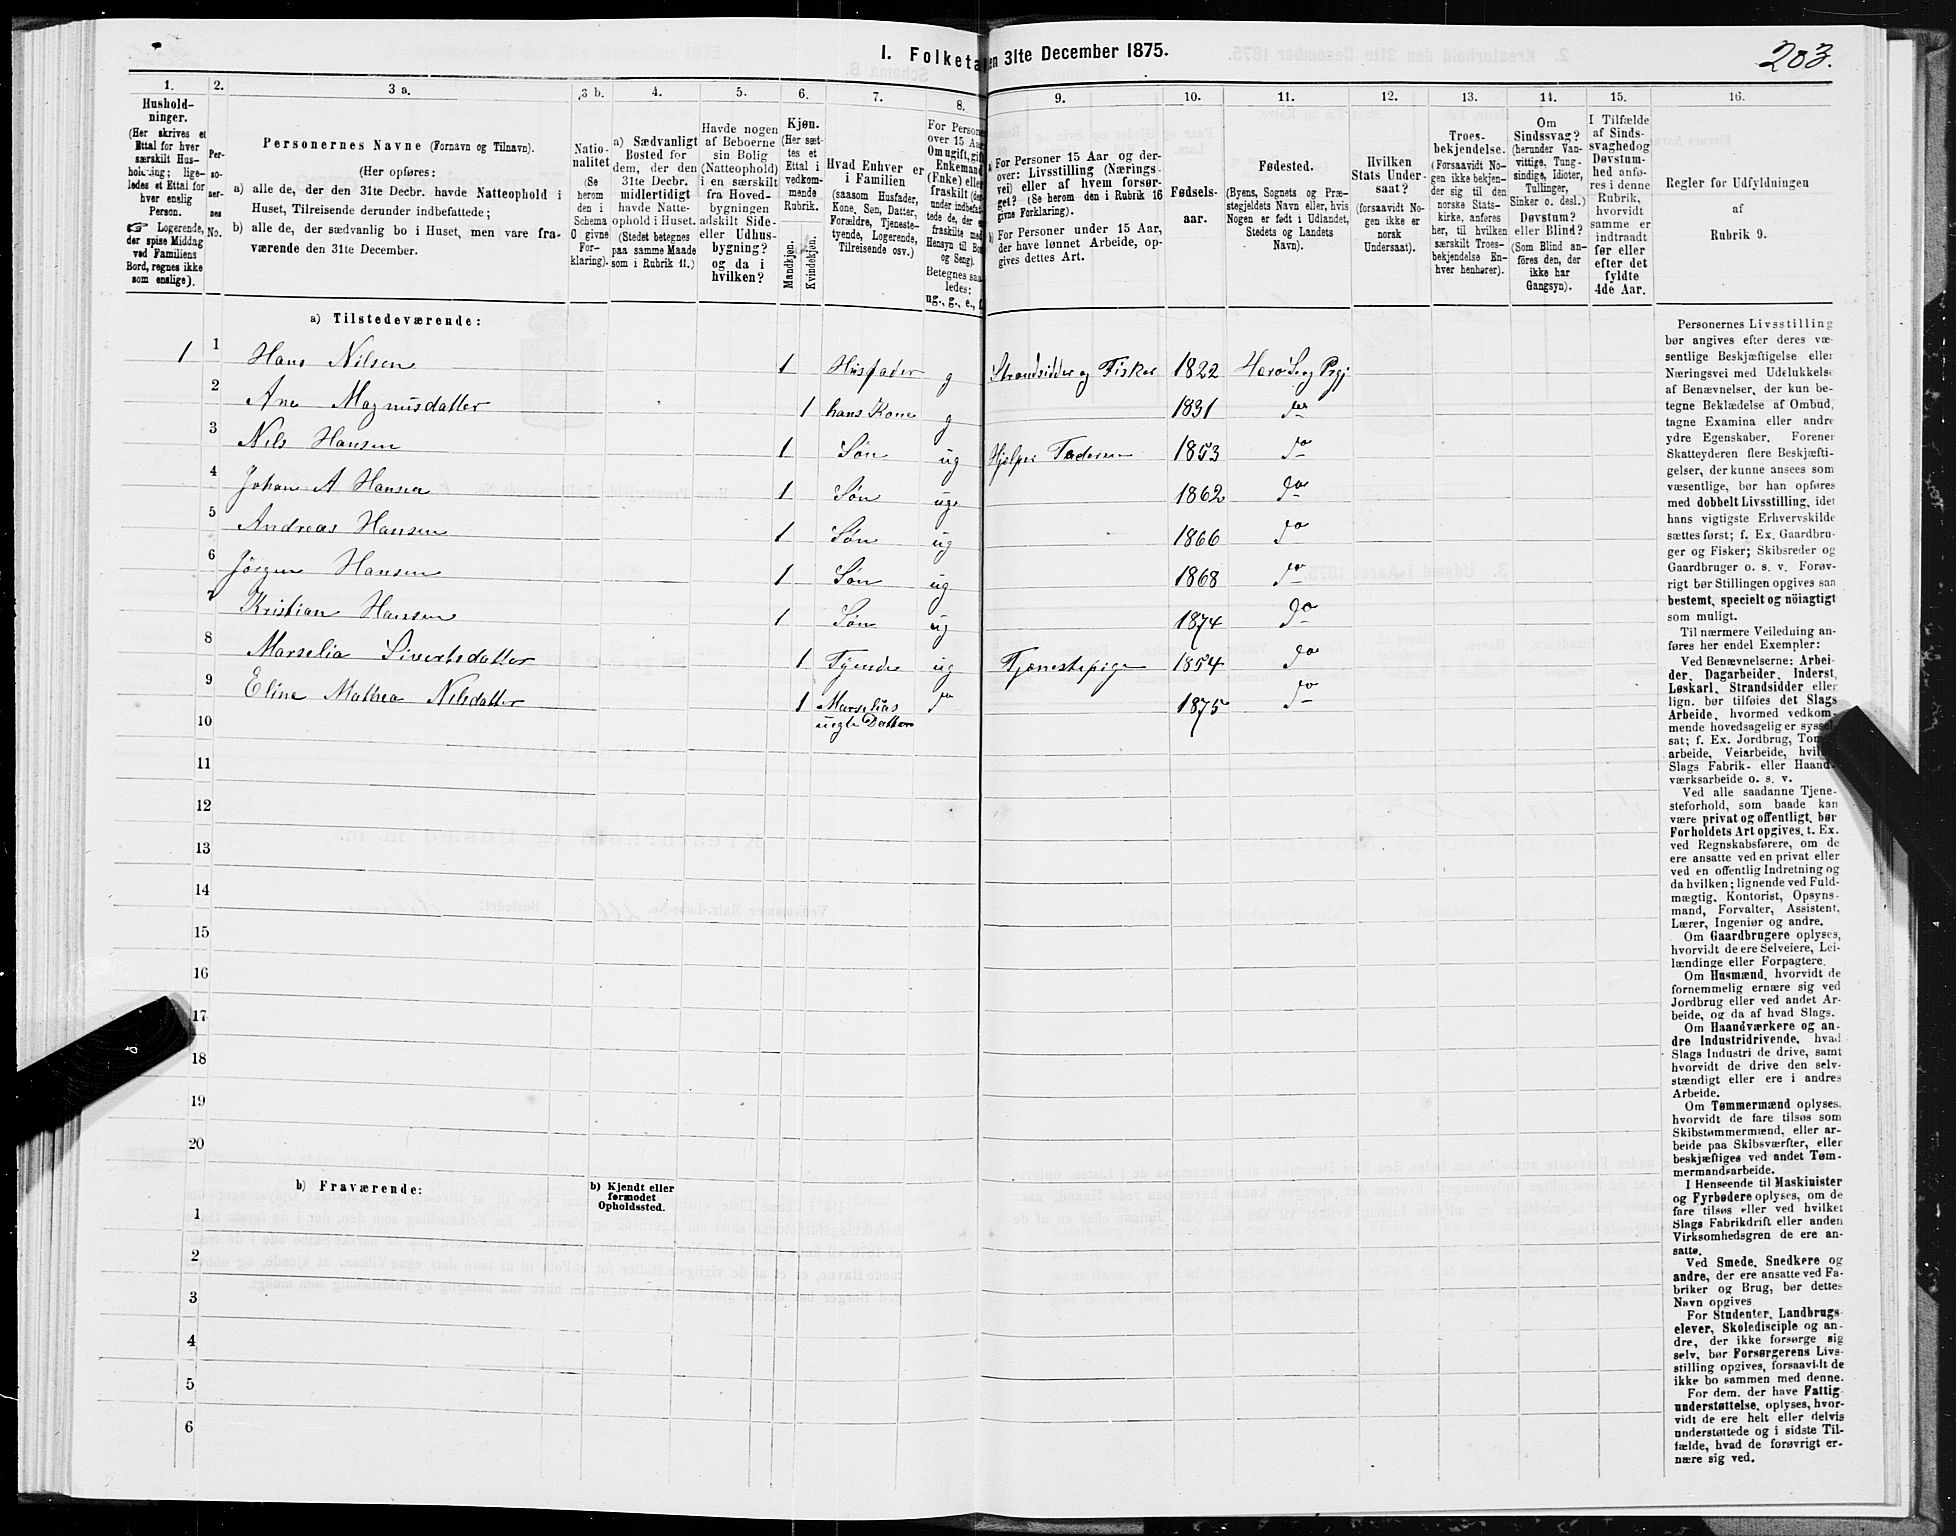 I. Folketa en 31te December 1875.
203.
1.
Hushold-
ninger.
(Her skrives et
Ettal for hver
særskilt Hus-
holdning; lige-
ledes et Ettal for
hver enslig
Person.
☞ Logerende,
der spise Middag
ved Familiens
Bord, regnes ikke
som enslige).
2.
Per-
so-
ner-
nes
No.
3 a.
Personernes Navne (Fornavn og Tilnavn).
(Her opføres:
a) alle de, der den 31te Decbr. havde Natteophold i
Huset, Tilreisende derunder indbefattede;
b) alle de, der sædvanlig bo i Huset, men vare fra-
værende den 31te December.
3 b.
Natio-
nalitet
(Se
herom
den i
Schema
C givne
For-
klaring).
4.
a) Sædvanligt
Bosted for
dem, der den
31te Decbr.
midlertidigt
havde Natte-
ophold i Huset.
(Stedet betegnes
paa samme Maade
som i Rubrik 11.)
5.
Havde nogen
af Beboerne
sin Bolig
(Natteophold)
i en særskilt
fra Hoved-
bygningen
adskilt Side-
eller Udhus-
bygning?
og da i
hvilken?
6.
Kjøn.
(Her sæt-
tes et
Ettal i
vedkom-
mende
Rubrik.
Mandkjøn.
Kvindekjøn.
7.
Hvad Enhver er
i Familien
(saasom Husfader,
Kone, Søn, Datter,
Forældre, Tjeneste-
tyende, Logerende,
Tilreisende osv.)
8.
For Persone
over 15 Aar
Om ugift, gift
Enkemand
(Enke) eller
fraskilt (der-
under indbefat-
tede de, der er
fraskilte med
Hensyn til Bo
og Seng).
Betegnes saa-
ledes:
ug., g., e., f.
9.
a) For Personer 15 Aar og der-
over: Livsstilling (Nærings-
vei) eller af hvem forsør-
get? (Se herom den i Rubrik 16
givne Forklaring).
b) For Personer under 15 Aar,
der have lønnet Arbeide, op-
gives dettes Art.
10.
Fødsels-
aar.
11.
Fødested.
(Byens, Sognets og Præ-
stegjeldets Navn eller, hvis
Nogen er født i Udlandet,
Stedets og Landets
Navn).
12.
Hvilken
Stats Under-
saat?
(forsaavidt No-
gen ikke er
norsk
Undersaat).
13.
Troes-
bekjendelse.
(Forsaavidt No-
gen ikke bekjen-
der sig til den
norske Stats-
kirke, anføres
her, til hvilken
særskilt Troes-
bekjendelse En-
hver henhører).
14.
Om
Sindssvag?
(herunder Van-
vittige, Tung-
sindige, Idioter,
Tullinger,
Sinker o. desl.)
Døvstum?
eller Blind?
(Som Blind an-
föres den, der
ikke har
Gangsyn).
15.
I Tilfælde
af Sinds-
svaghed og
Døvstum-
hed anfø-
res i denne
Rubrik,
hvorvidt
samme er
indtraadt
før eller
efter det
fyldte
4de Aar.
16.
Regler for Udfyldningen
af
Rubrik 9.
a) Tilstedeværende:
1 1 Hans Nilsen 1 Husfader g Strandsidder og Fisker 1822 Herø S og Prgj
2 Ane Magnusdatter 1 hans Kone g 1831 do
3 Nils Hansen 1 Søn ug Hjelper Faderen 1853 do
4 Johan A Hansen 1 Søn ug 1862 do
5 Andreas Hansen 1 Søn ug 1866 do
6 Jörgen Hansen 1 Søn ug 1868 do
7 Kristian Hansen 1 Søn ug 1874 do
8 Marselia Sivertsdatter 1 Tyende ug Tjenestepige 1854 do
9 Eline Mathea Nilsdatter 1 Marselias do 1875 do
10 uegte Datter
11
12
13
14
15
16
17
18
19
20
b) Fraværende:
b) Kjendt eller
formodet
Opholdssted.
1
2
3
4
5
6
Personernes Livsstilling
bør angives efter deres væ-
sentlige Beskjæftigelse eller
Næringsvei med Udelukkelse
af Benævnelser, der kun be-
tegne Beklædelse af Ombud,
tagne Examina eller andre
ydre Egenskaber. Forener
Skatteyderen flere Beskjæfti-
gelser, der kunne ansees som
væsentlige, bør han opføres
med dobbelt Livsstilling, idet
hans vigtigste Erhvervskilde
sættes først; f. Ex. Gaardbru-
ger og Fisker; Skibsreder og
Gaardbruger o. s. v. Forøv-
rigt bør Stillingen opgives saa
bestemt, specielt og nöiagtigt
som muligt.
Til nærmere Veiledning an-
føres her endel Exempler:
Ved Benævnelserne: Arbei-
der, Dagarbeider, Inderst,
Løskarl, Strandsidder eller
lign. bør tilføies det Slags
Arbeide, hvormed vedkom-
mende hovedsagelig er syssel-
sat; f. Ex. Jordbrug, Tom
arbeide, Veiarbeide, hvil
Slags Fabrik- eller Haand-
værksarbeide o. s. v.
Ved alle saadanne Tjene-
steforhold, som baade kan
være privat og offentligt, bør
Forholdets Art opgives, t. Ex.
ved Regnskabsførere, om de
ere ansatte ved en privat eller
ved en offentlig Indretning og
da hvilken; lignende ved Fuld-
mægtig, Kontorist, Opsyns-
mand, Forvalter, Assistent,
Lærer, Ingeniør og andre.
Om Gaardbrugere oplyses,
hvorvidt de ere Selveiere, Lei-
lændinge eller Forpagtere.
Om Husmænd, hvorvidt de
fornemmelig ernære sig ved
Jordbrug eller ved andet Ar-
beide, og da af hvad Slags.
Om Haandværkere og an-
dre Industridrivende, hvad
Slags Industri de drive, samt
hvorvidt de drive den selv-
stændigt eller ere i andres
Arbeide.
Om Tømmermænd oplyses,
hvorvidt de fare tilsøs som
Skibstømmermænd, eller ar-
beide paa Skibsværfter, eller
beskjæftiges ved andet Tøm-
mermandsarbeide.
I Henseende til Maskinister
og Fyrbødere oplyses, om de
fare tilsøs eller ved hvilket
Slags Fabrikdrift eller anden
Virksomhedsgren de ere an-
satte.
Ved Smede, Snedkere og
andre, der ere ansatte ved Fa-
briker og Brug, bør dettes
Navn opgives
For Studenter, Landbrugs-
elever, Skoledisciple og an-
dre, der ikke forsørge sig
selv, bør Forsørgerens Livs-
stilling opgives, forsaavidt de
ikke bo sammen med denne.
For dem, der have Fattig-
understøttelse, oplyses, hvor-
vidt de ere helt eller delvis
understøttede og i sidste Til-
fælde, hvad de forøvrigt er-
nære sig ved.